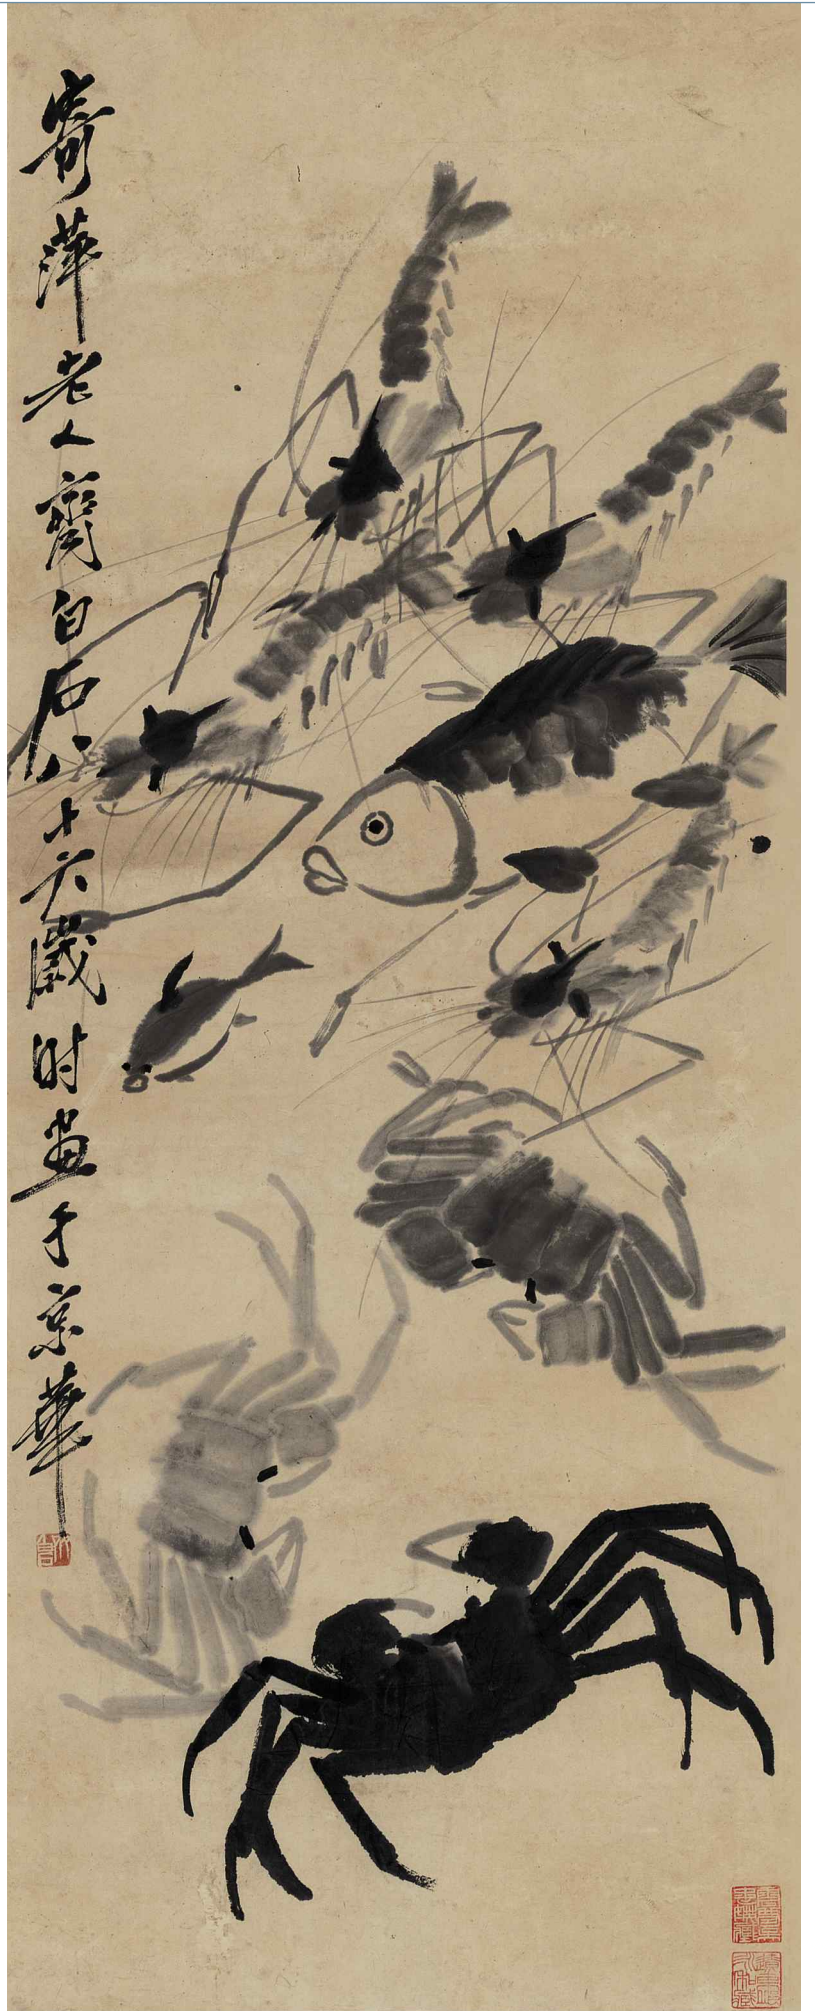 寄萍老人齊白石八十六歲时畫于京華